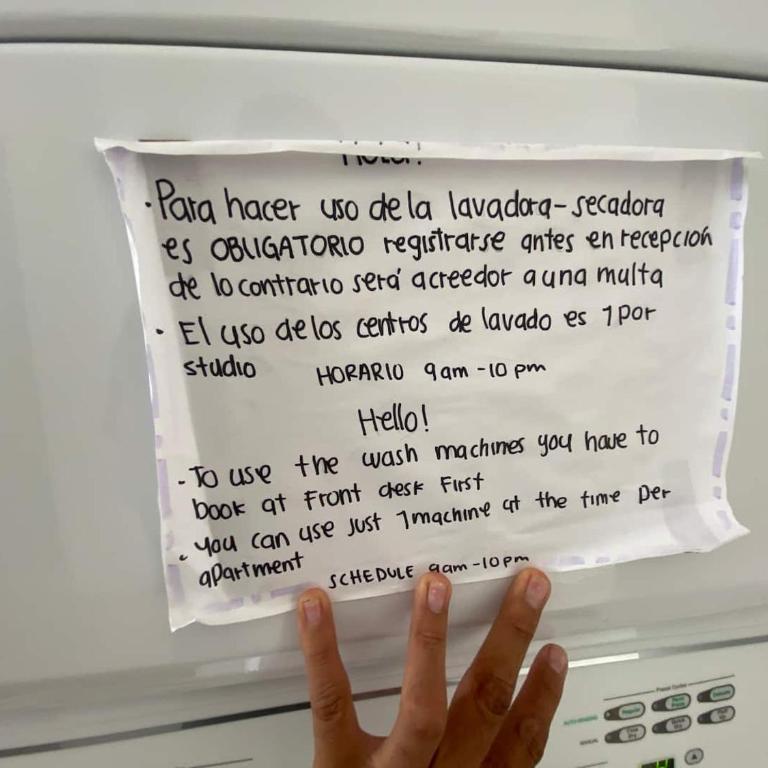 · Para hacer uso de la lavadora-secadora
es OBLIGATORIO registrarse antes en recepción
de lo contrario será acreedor a una multa
· El uso de los centros de lavado es 1 por
studio HORARIO 9am-10pm
Hello!
- To use the wash machines you have to
book at Front desk First
- you can use Just 1 machine at the time per
apartment SCHEDULE 9am-10pm